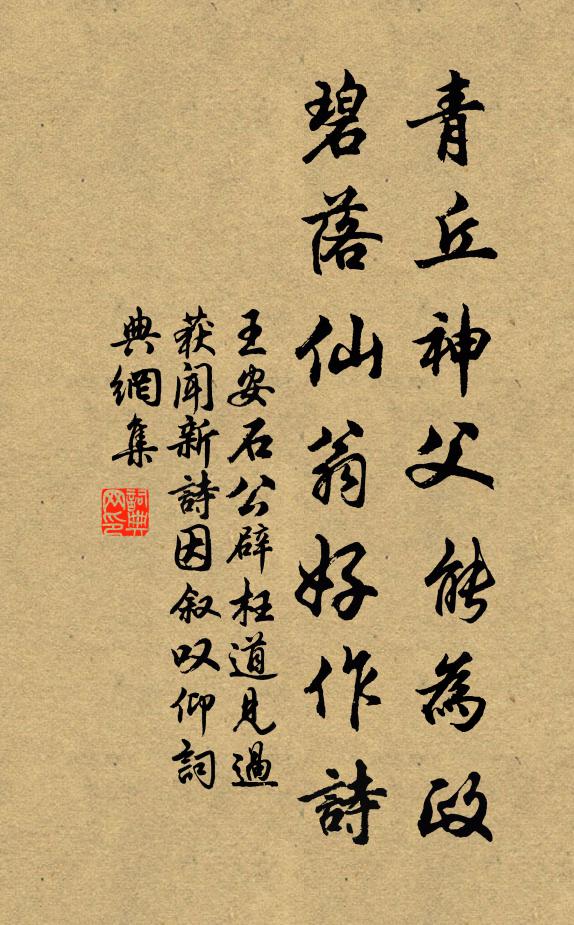 青丘神父能為政
碧落仙翁好作詩
王安石公辟枉道見過
获聞新詩因叙叹仰詞
典網集
詞典
网印